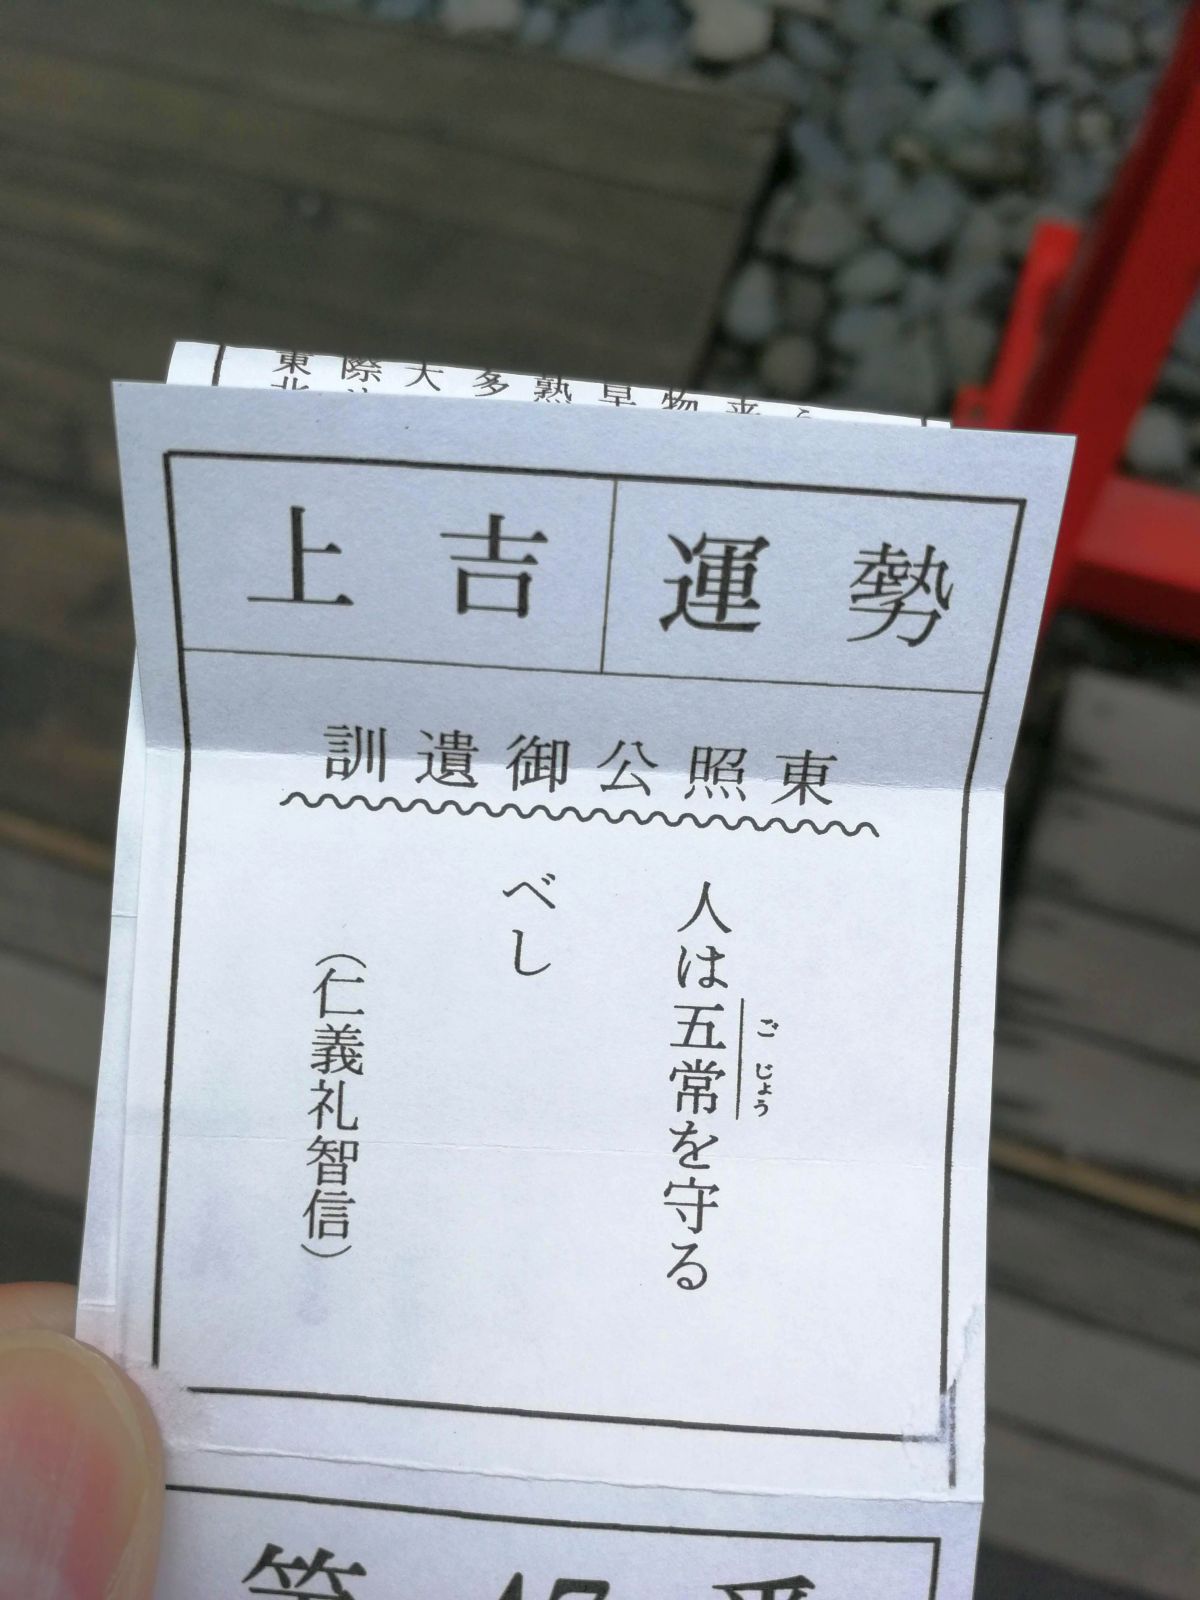 東 際 大 多 熟 早 物 来
運勢
上吉
東照公御遺訓
人は五常を守る
ごじょう
べし
（仁義礼智信）
第 47 番